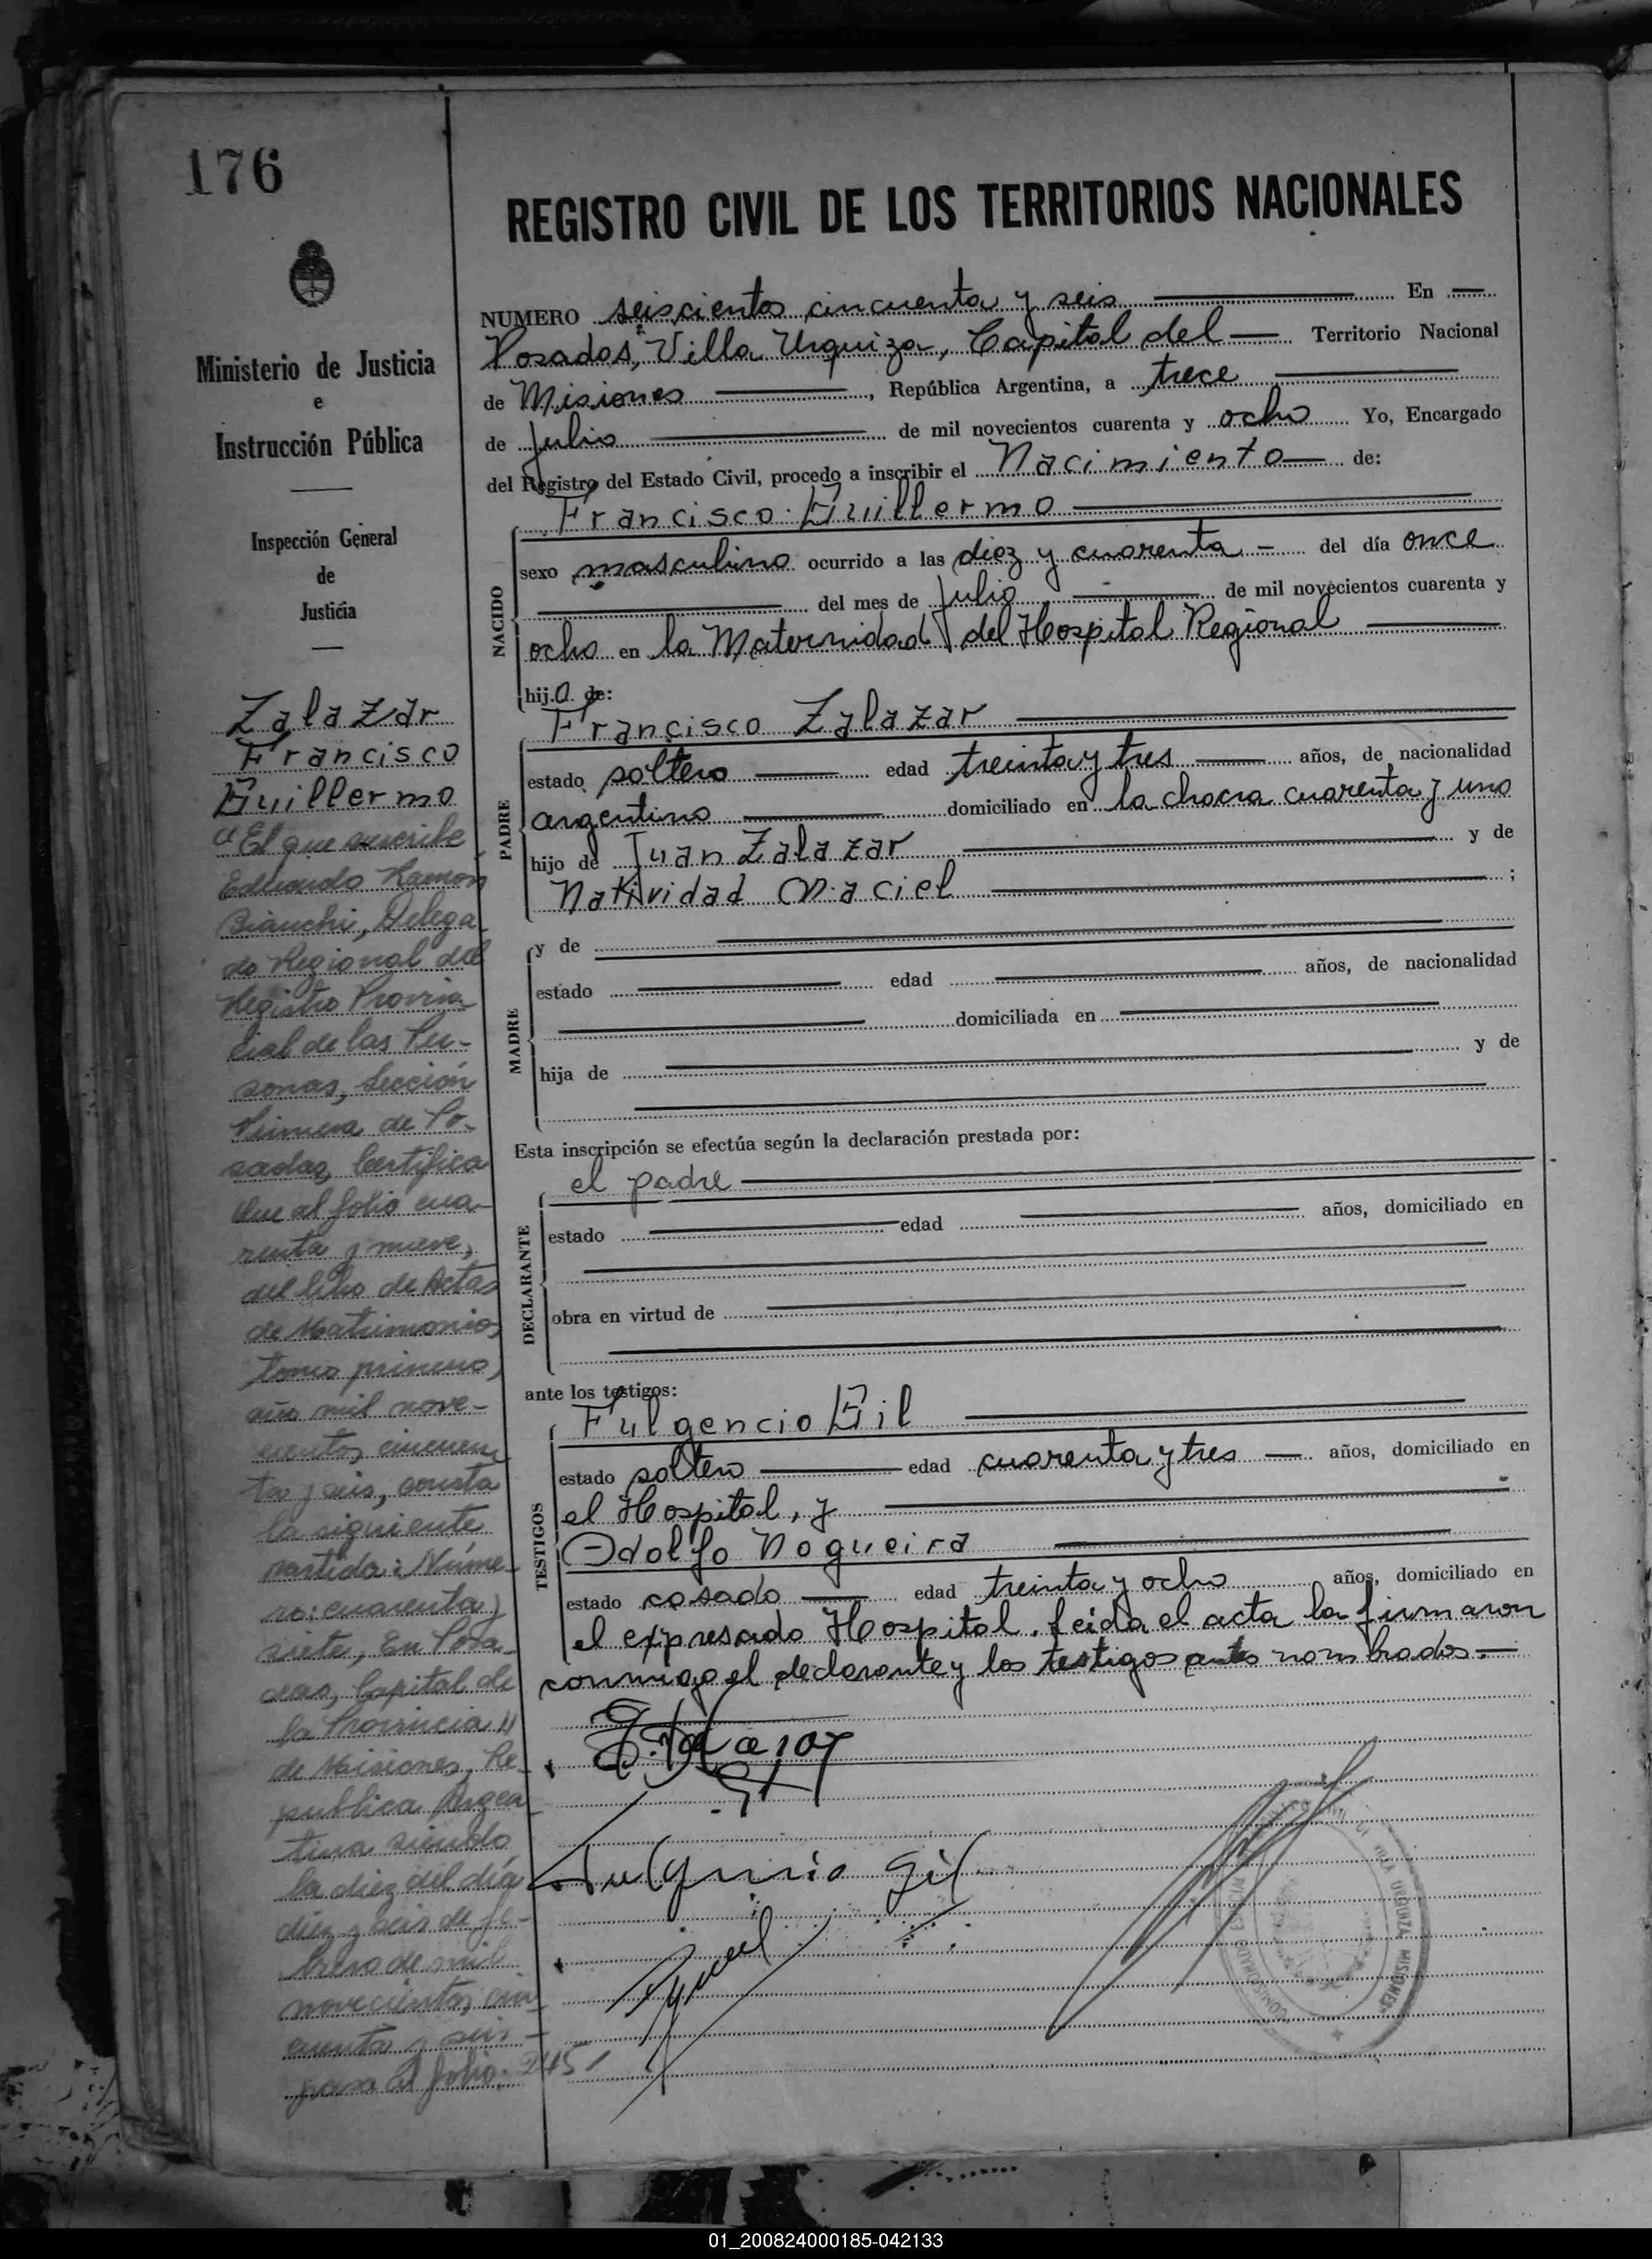 176
Ministerio de Justicia
e
Instrucción Pública
Inspección General
de
Justicia
Zalazar
Francisco
Guillermo
"El que suscribe
Eduardo Ramón
Bianchi, Delega
do Regional del
Registro Provin
cial de las Per-
sonas, Sección
Primera de Po-
sadas, Certifica
Que al folio cua-
renta y nueve,
del libro de Actas
de Matrimonios,
tomo primero,
año mil nove-
cientos cincuen
ta y seis, consta
la siguiente
partida: Núme-
ro: cuarenta y
siete, En Posa-
das, Capital de
la Provincia
de Misiones, Re-
publica Argen
tina siendo
la diez del día
diez y seis de fe-
brero de mil
novecientos cin
cuenta y seis -
pasa al folio: 245
REGISTRO CIVIL DE LOS TERRITORIOS NACIONALES
NUMERO seiscientos cincuenta y seis En
Posadas, Villa Urquiza, Capital del Territorio Nacional
de Misiones, República Argentina, a trece
de julio de mil novecientos cuarenta y ocho Yo, Encargado
del Registro del Estado Civil, procedo a inscribir el Nacimiento de:
Francisco Guillermo
NACIDO
sexo masculino ocurrido a las diez y cuarenta del día once
del mes de julio de mil novecientos cuarenta y
ocho en la Maternidad del Hospital Regional
hijo de:
Francisco Zalazar
PADRE
estado soltero edad treinta y tres años, de nacionalidad
argentino domiciliado en la chacra cuarenta y uno
hijo de Juan Zalazar y de
Natividad Maciel ;
MADRE
y de
estado edad años, de nacionalidad
domiciliada en
hija de y de
Esta inscripción se efectúa según la declaración prestada por:
el padre
DECLARANTE
estado edad años, domiciliado en
obra en virtud de
ante los testigos:
Fulgencio Gil
TESTIGOS
estado soltero edad cuarenta y tres años, domiciliado en
el Hospital, y
Adolfo Nogueira
estado casado edad treinta y ocho años, domiciliado en
el expresado Hospital. Leida el acta la firmaron
conmigo el declarante y los testigos antes nombrados.=
Fulgencio Gil
VILLA URQUIZA MISIONES
01_200824000185-042133